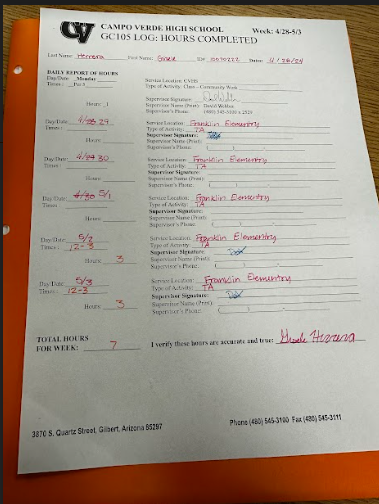 CV
CAMPO VERDE HIGH SCHOOL Week: 4/28-5/3
GC105 LOG: HOURS COMPLETED
Last Name: Herrera First Name: Date:
DAILY REPORT OF HOURS
Day/Date: Monday Service Location: CVHS
Times: Type of Activity: Class - Community Work
Supervisor Signature:
Hours: 1 Supervisor Name (Print):
Supervisor's Phone: (480) 545-3100 x
Day/Date: 4/28 29 Service Location: Franklin Elementry
Times: Type of Activity: TA
Supervisor Signature:
Hours: Supervisor Name (Print):
Supervisor's Phone: ( )
Day/Date: 4/29 30 Service Location: Franklin Elementry
Times: Type of Activity: TA
Supervisor Signature:
Hours: Supervisor Name (Print):
Supervisor's Phone: ( )
Day/Date: 4/30 5/1 Service Location: Franklin Elementry
Times: Type of Activity: TA
Supervisor Signature:
Hours: Supervisor Name (Print):
Supervisor's Phone: ( )
Day/Date: 5/2 Service Location: Franklin Elementry
Times: 12-3 Type of Activity: TA
Supervisor Signature:
Hours: 3 Supervisor Name (Print):
Supervisor's Phone: ( )
Day/Date: 5/3 Service Location: Franklin Elementry
Times: 12-3 Type of Activity: TA
Supervisor Signature:
Hours: 3 Supervisor Name (Print):
Supervisor's Phone: ( )
TOTAL HOURS
FOR WEEK: 7 I verify these hours are accurate and true: Herrera
3870 S. Quartz Street, Gilbert, Arizona 85297 Phone (480) 545-3100 Fax (480) 545-3111